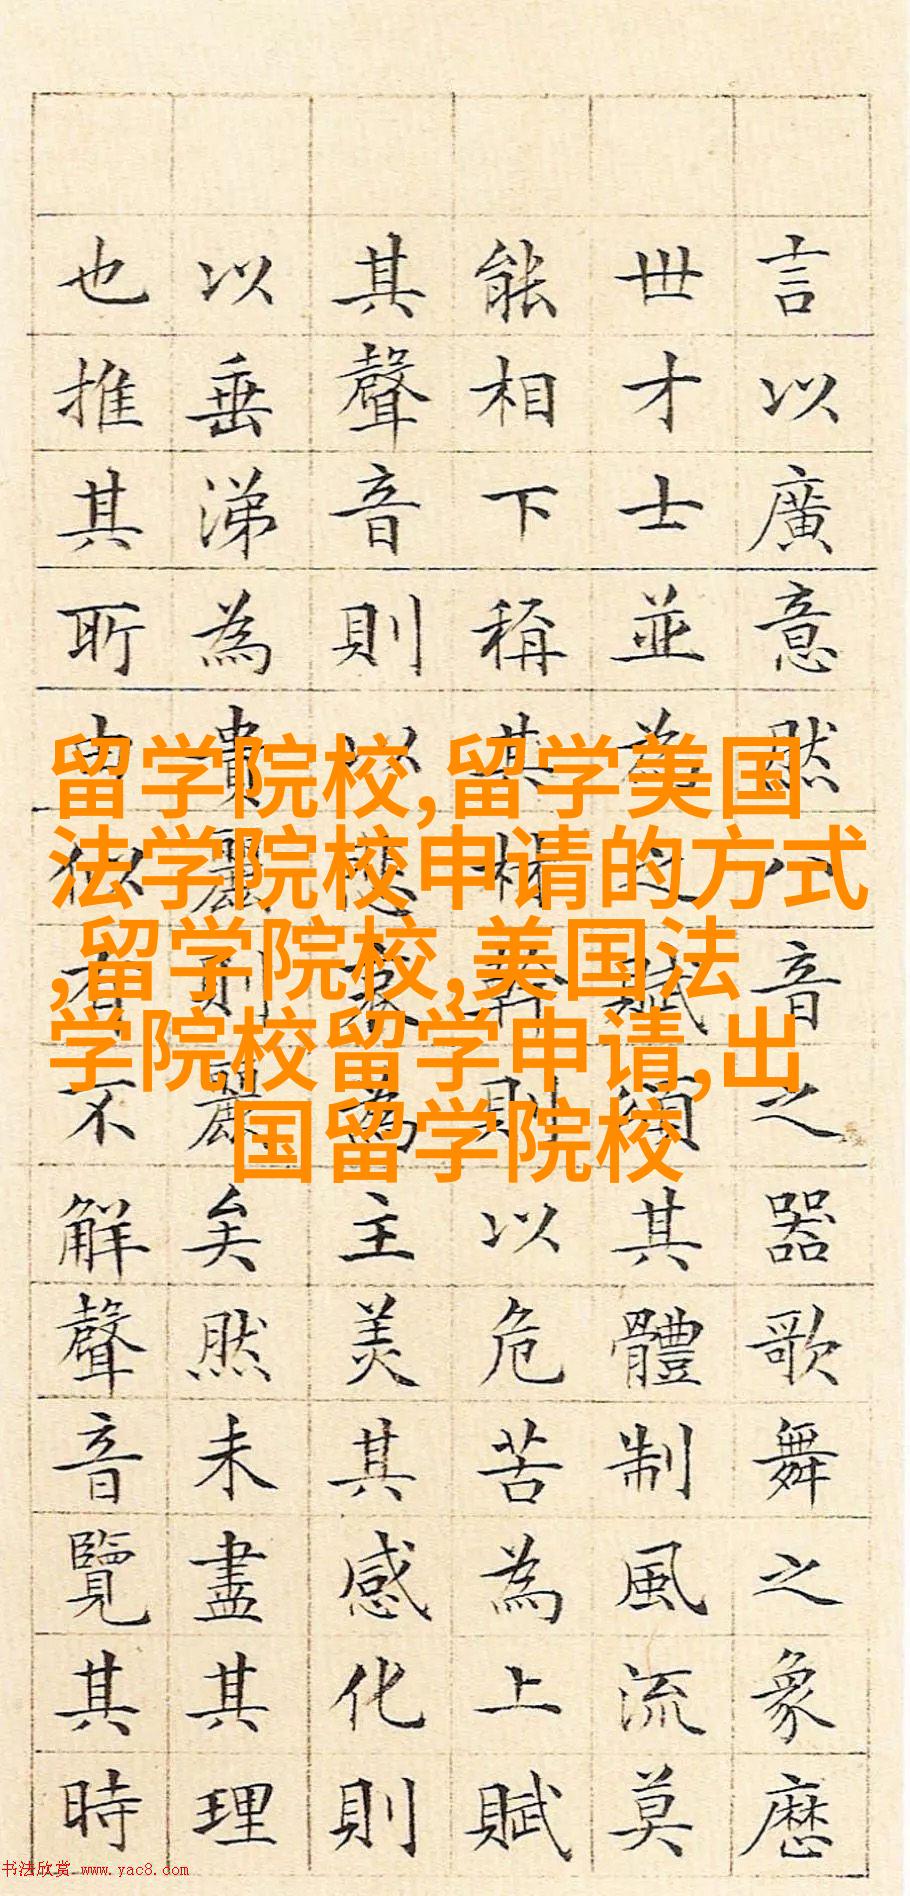 言以廣意然八音之器歌舞之象歷
世才士並為之賦頌其體制風流莫
能相下稱其材幹則以危苦為上賦
其聲音則以悲哀為主美其感化則
以垂涕為貴麗則麗矣然未盡其理
也推其所由似有不解聲音覽其時
留学院校,留学美国
法学院校申请的方式
,留学院校,美国法
学院校留学申请,出
国留学院校
书法欣赏 www.yac8.com